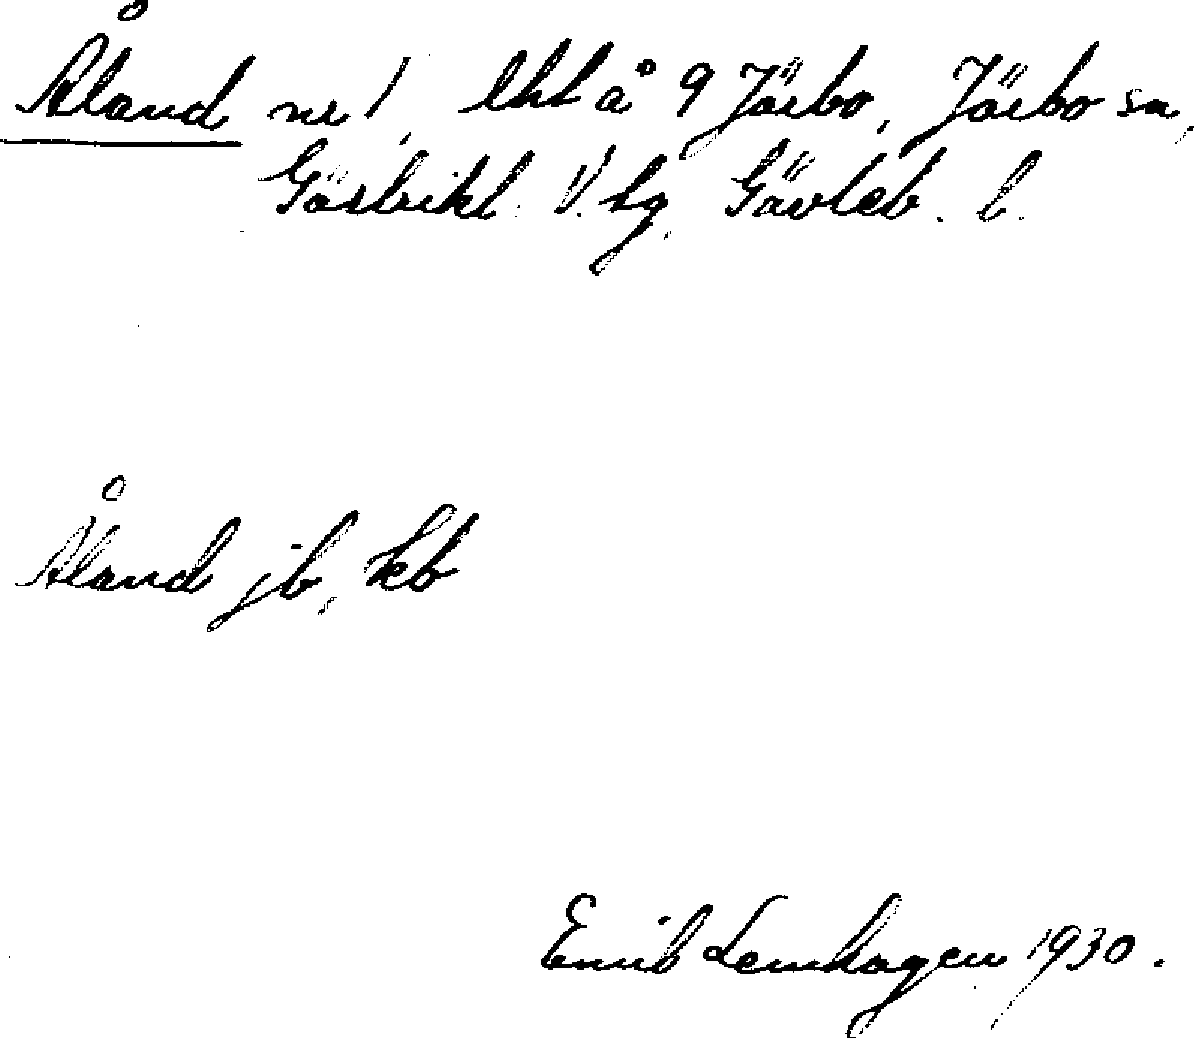 Åland nr 1, lht å 9 Järbo, Järbo sn,
Gästrikl. V. tg, Gävleb. l.
Åland jb, kb
Emil Lemhagen 1930.